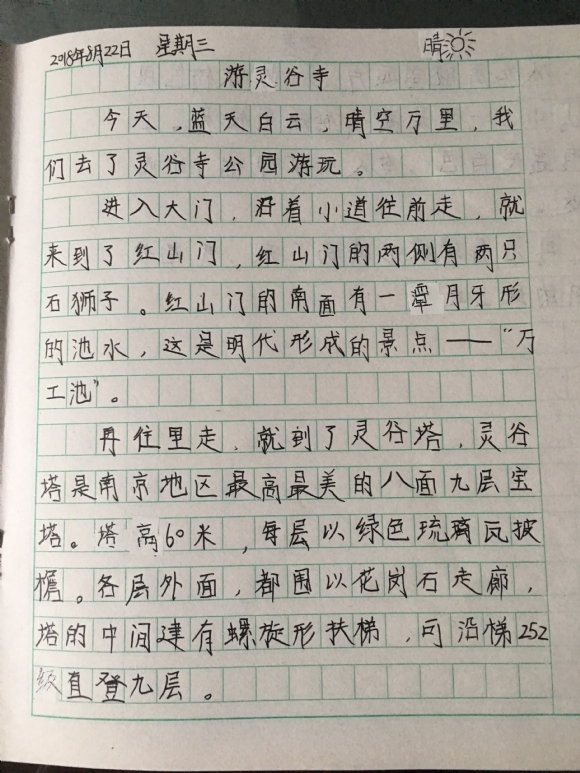 2018年8月22日 星期三 晴
游灵谷寺
今天，蓝天白云，晴空万里，我
们去了灵谷寺公园游玩。
进入大门，沿着小道往前走，就
来到了红山门，红山门的两侧有两只
石狮子。红山门的南面有一潭月牙形
的池水，这是明代形成的景点——“万
工池”。
再往里走，就到了灵谷塔，灵谷
塔是南京地区最高最美的八面九层宝
塔。塔高60米，每层以绿色琉璃瓦披
檐。各层外面，都围以花岗石走廊，
塔的中间建有螺旋形扶梯，可沿梯252
级直登九层。